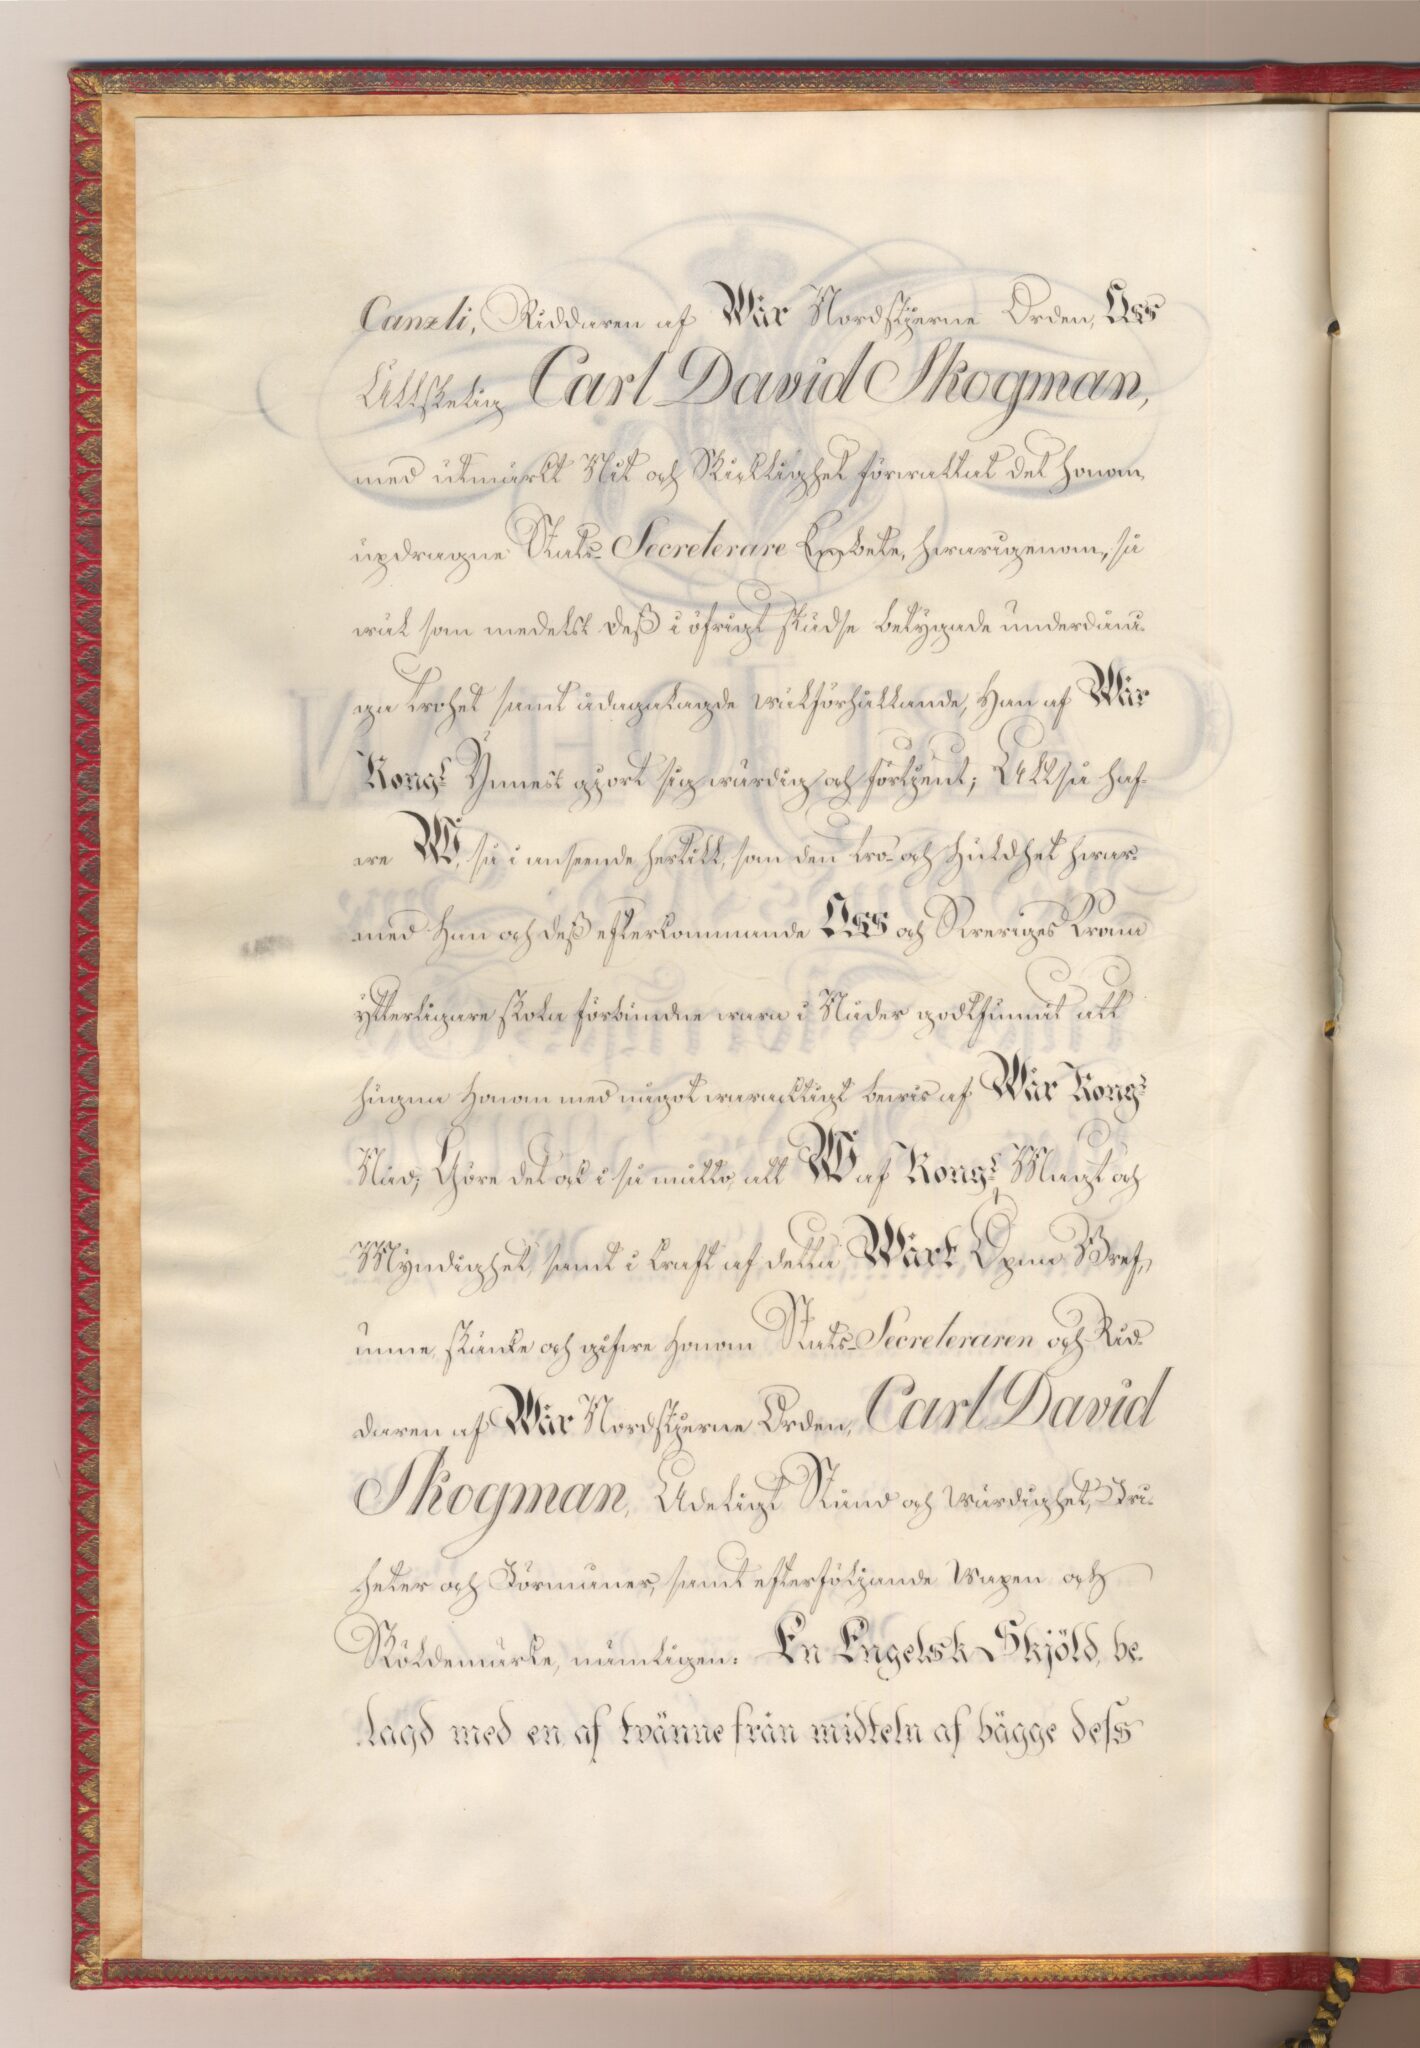 Canzli, Riddaren af Wår Nordstjerne Orden, Oss
Allskelig Carl David Skogman,
med utmärkt Nit och Skicklighet förvaltat det honom
updragne Stats-Secreterare Embete, hwarigenom, så
wäl som medelst deß i öfrigt städse betygade underdåni-
ga trohet samt ådagalagde wälförhållande, Han af Wår
Kongl. Ynnest gjort sig wärdig och förtjent; Altså haf-
we W, så i anseende hertill, som den tro- och huldhet hwar-
med Han och deß efterkommande Oss och Sweriges Krona
ytterligare skola förbundne wara i Nåder godtfunnit att
hugna Honom med något waracktigt bewis af Wår Kongl.
Nåd; Göre det ock i så måtto, att W af Kongl. Magt och
Myndighet, samt i kraft af detta Wårt Öpna Bref,
unne, skänke och gifwe Honom Stats-Secreteraren och Rid-
daren af Wår Nordstjerne Orden, Carl David
Skogman, Adeligt Stånd och Wärdighet, Fri-
heter och Förmåner, samt efterföljande Wapen och
Sköldemärke, nämligen: En Engelsk Skjöld, be-
lagd med en af tvänne från midteln af bägge dess